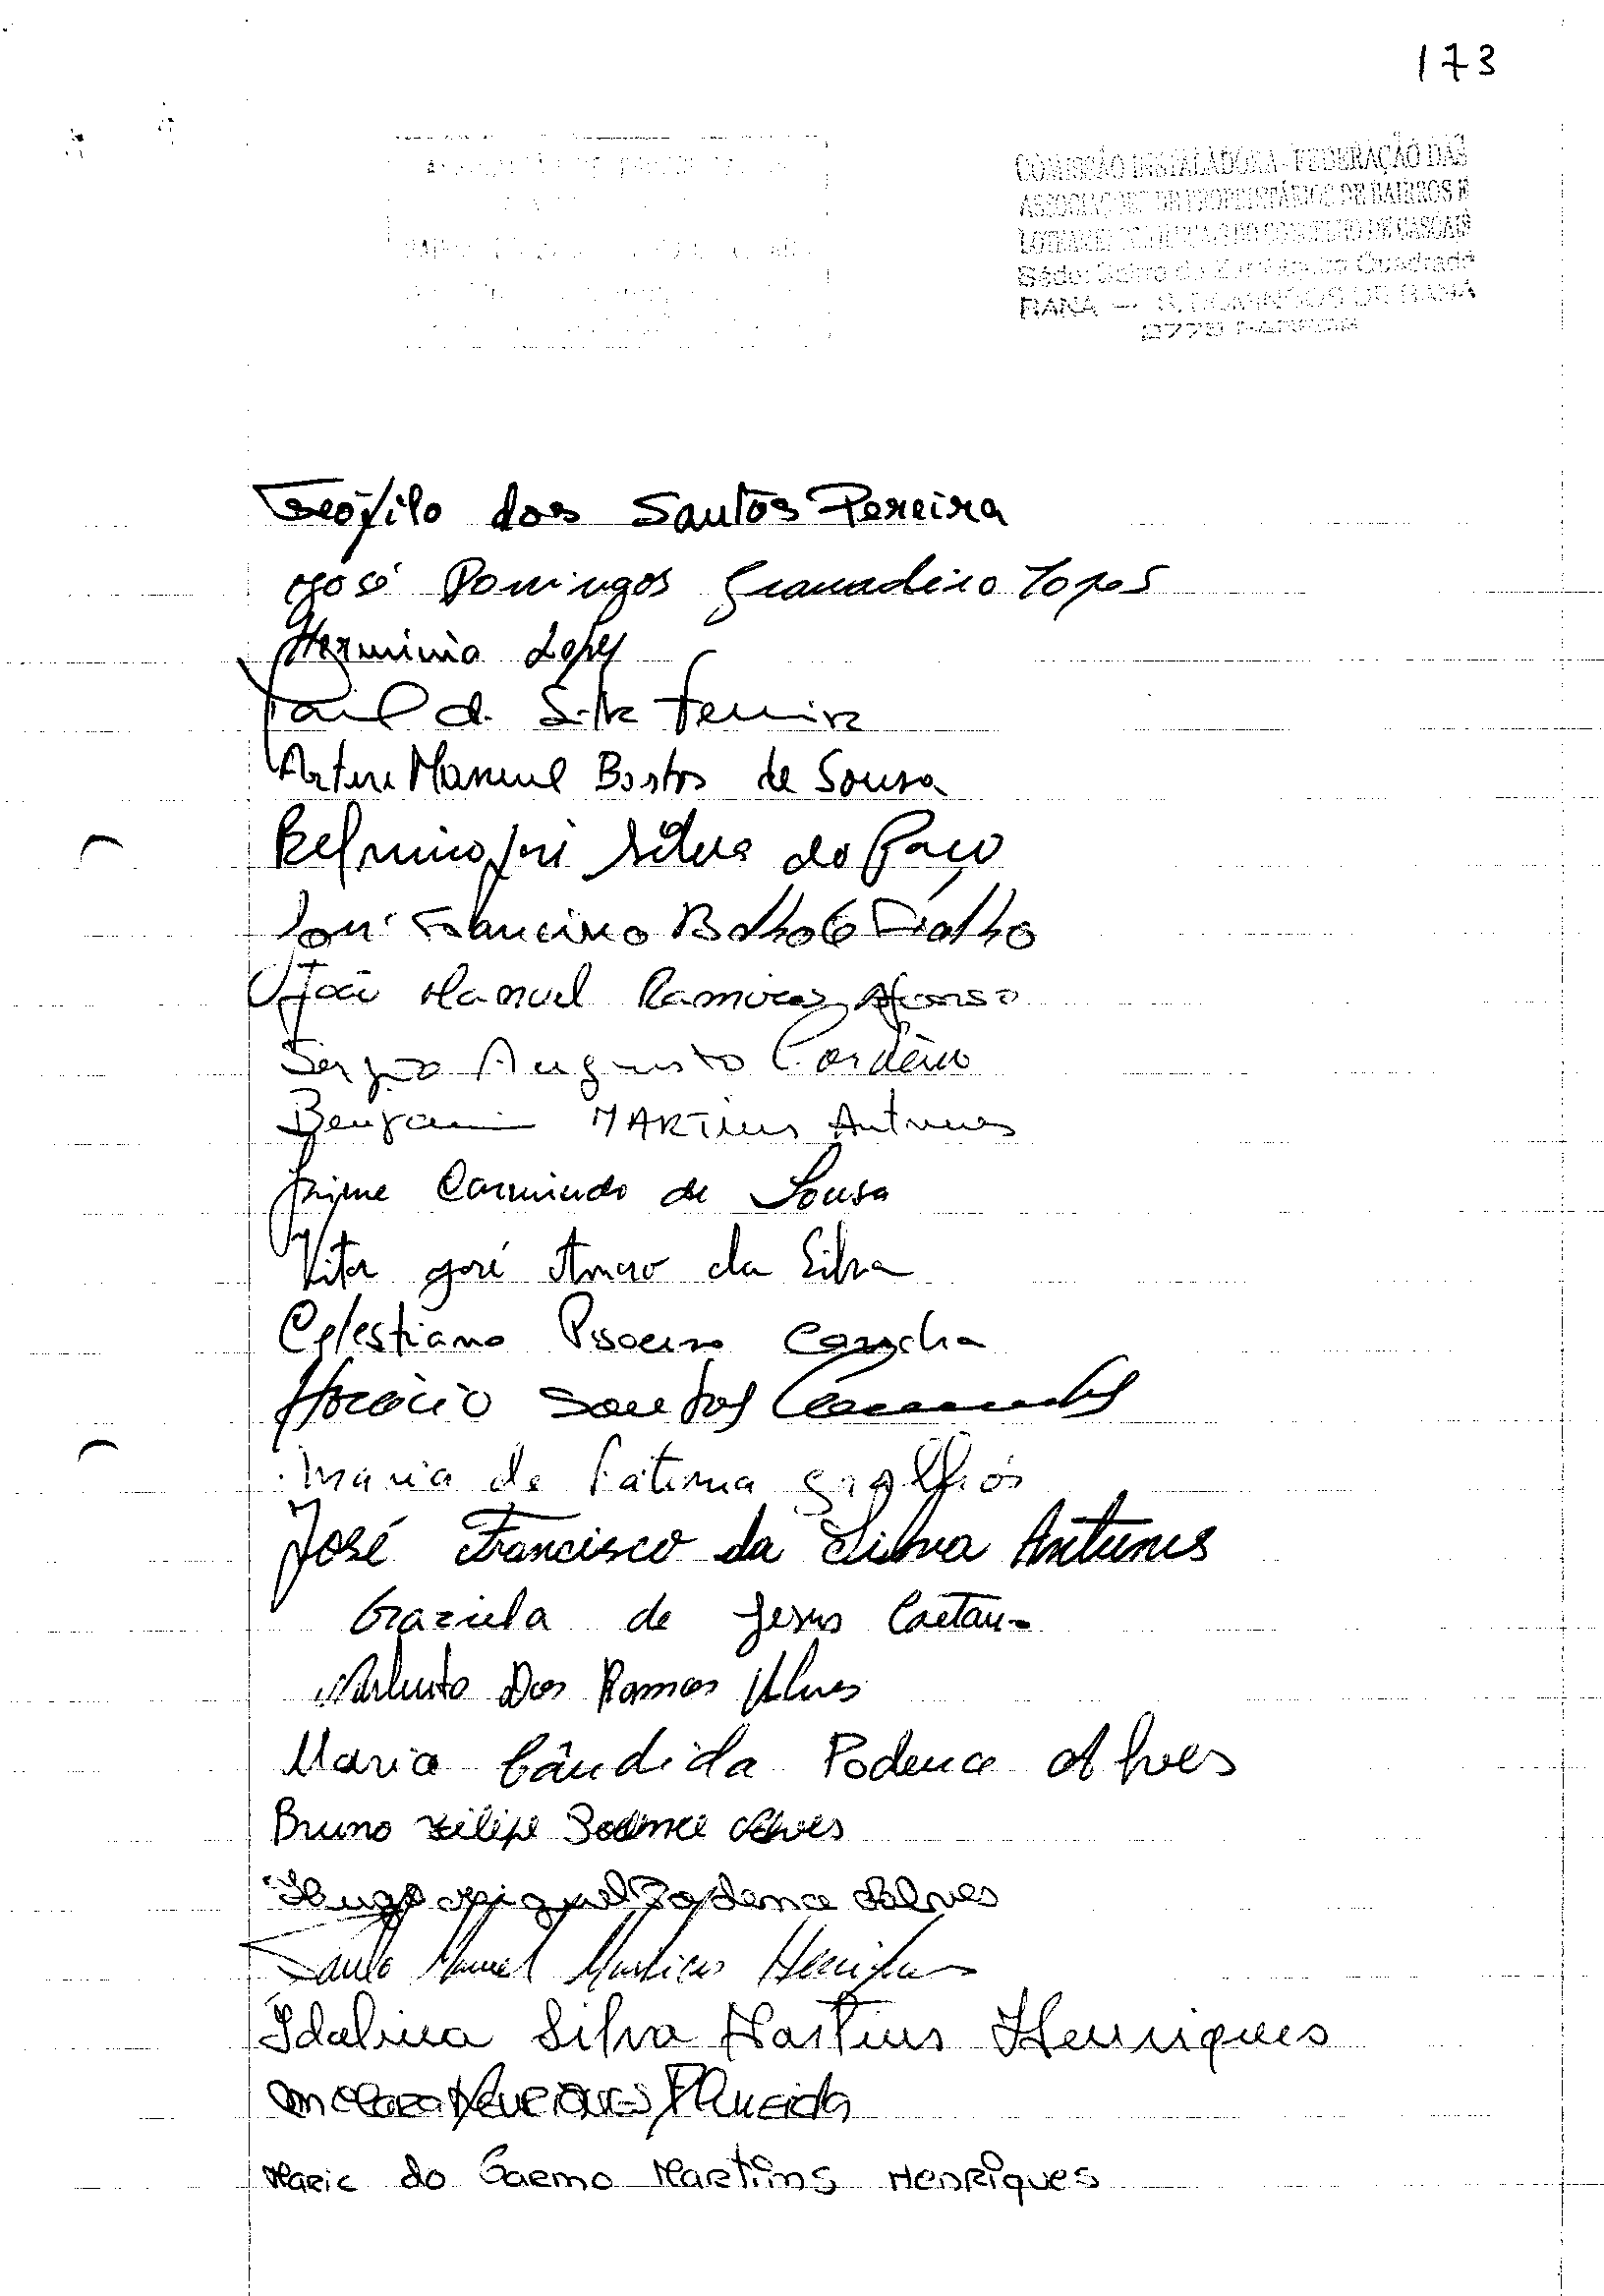 173
COMISSÃO INSTALADORA - FEDERAÇÃO DAS
ASSOCIAÇÕES DE PROPRIETÁRIOS DE BAIRROS E
DO CONCELHO DE CASCAIS
Séde: Bairro do Quadrado
RANA — S. DOMINGOS DE RANA
Teófilo dos Santos Pereira
José Domingos Granadeiro Lopes
Herminia Lopes
da Silva Ferreira
Artur Manuel Bastos de Sousa
José Silva do Paço
José Francisco Fialho
João Manuel Ramires Afonso
Sergio Augusto Cordeiro
Benjamim MARTins Antunes
Jaime Carmindo de Sousa
Vitor José Amaro da Silva
Celestiano
Horácio Santos
Maria de Fátima
José Francisco da Silva Antunes
Graziela de Jesus Caetano
Norberto Dos Ramos Alves
Maria Cândida Podence Alves
Bruno Filipe Podence Alves
Hugo Miguel Podence Alves
Paulo Manuel Martins Henriques
Idalina Silva Martins Henriques
Henriques Almeida
Maria do Carmo Martins Henriques